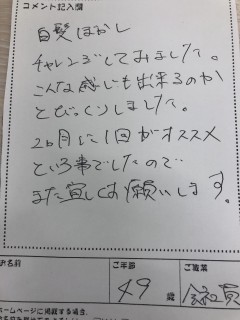 コメント記入欄
白髪ぼかし
チャレンジしてみました。
こんな感じも出来るのか
とびっくりしました。
2ヵ月に1回がオススメ
という事でしたので
また宜しくお願いします。
お名前
ご年齢
ご職業
49
歳
会社員
ホームページに掲載する場合、